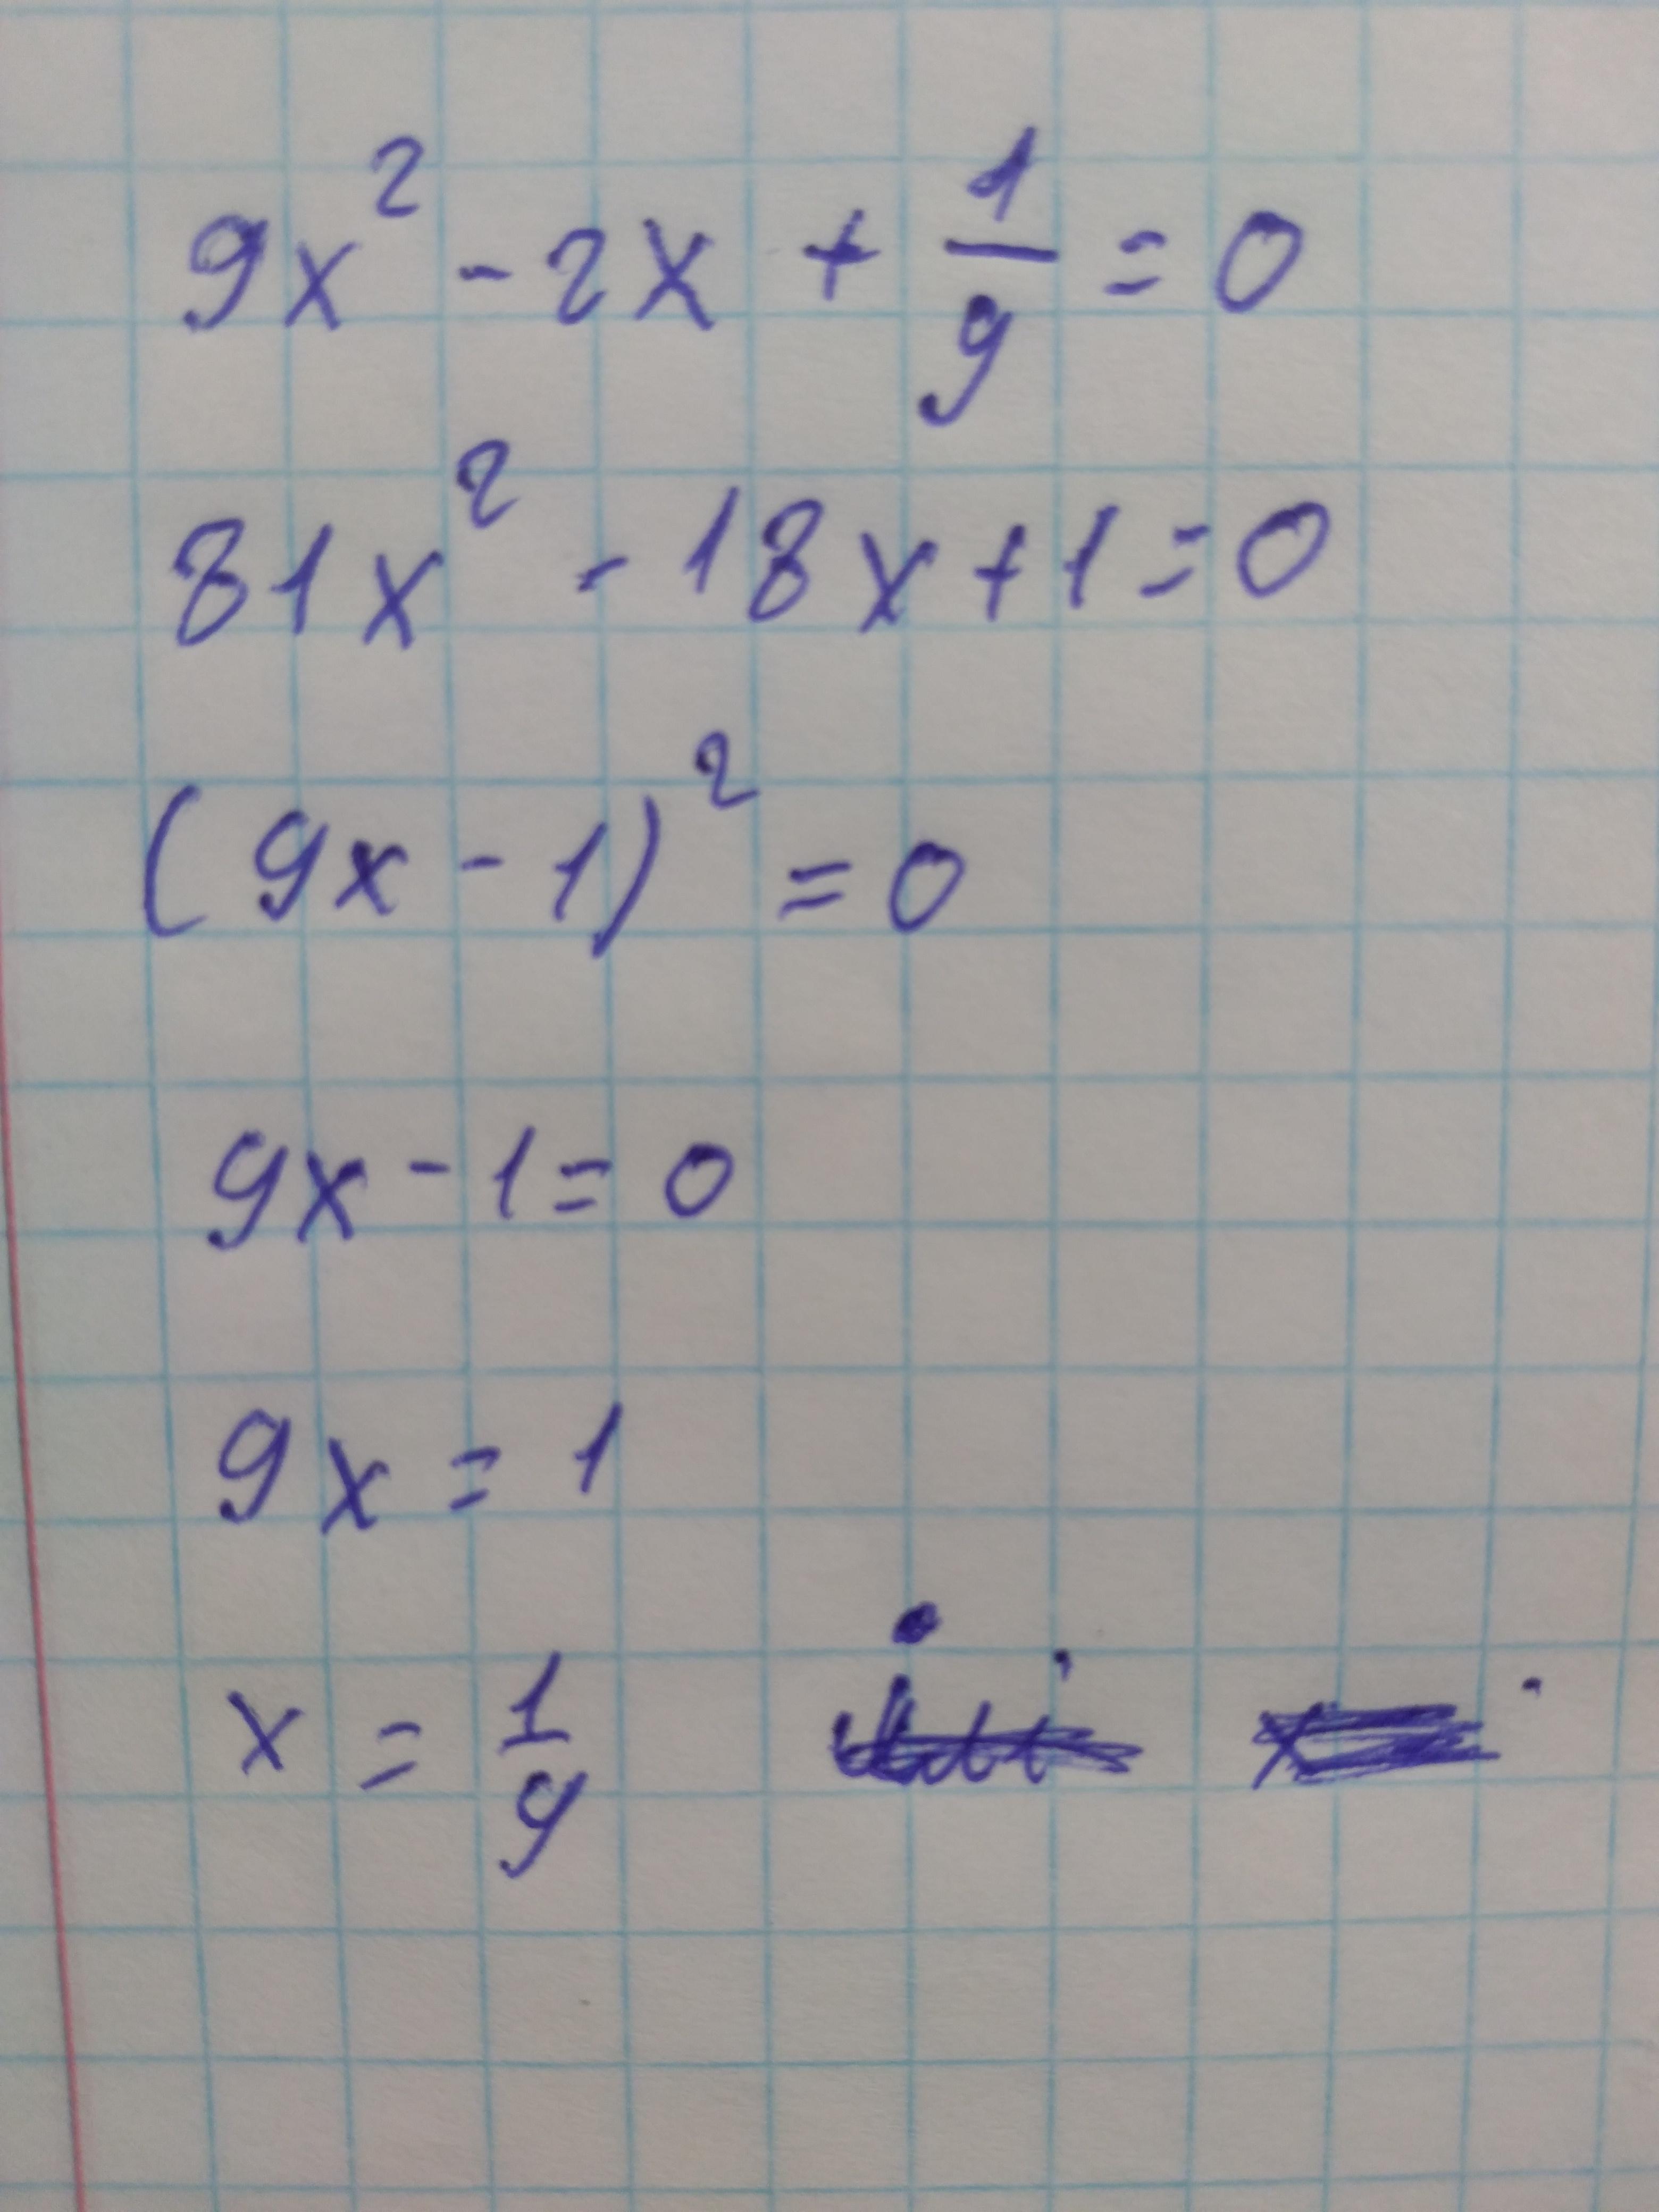 9x² - 2x + 1/9 = 0
81x² - 18x + 1 = 0
(9x - 1)² = 0
9x - 1 = 0
9x = 1
x = 1/9